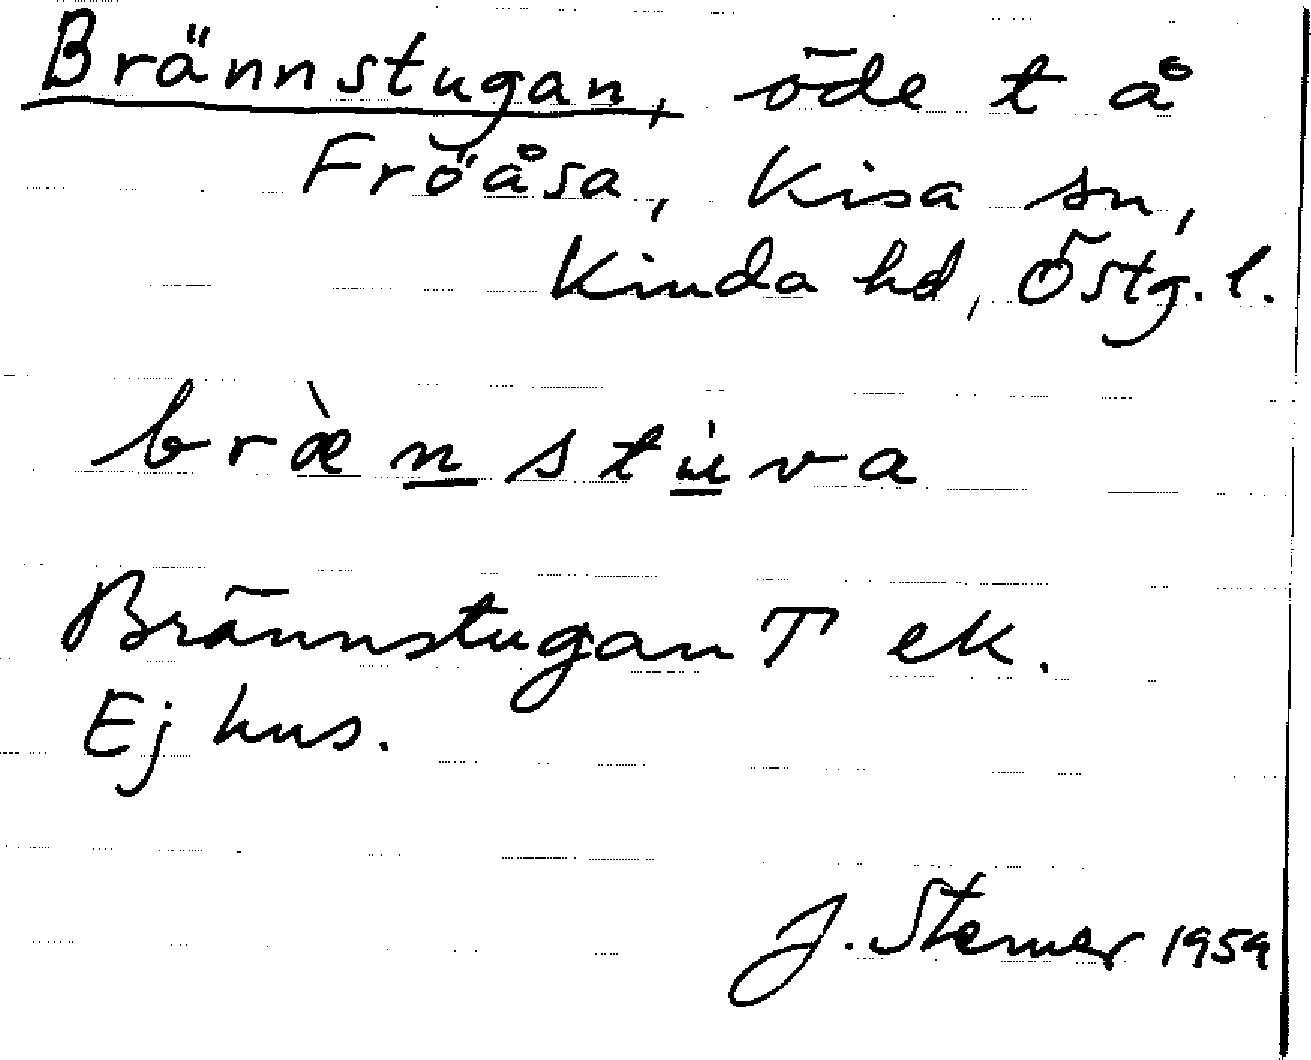 Brännstugan, öde t å
Fröåsa, Kisa sn,
Kinda hd, Östg. l.
bræ̀nstu̇va
Brännstugan T ek.
Ej hus.
J. Sterner 1959